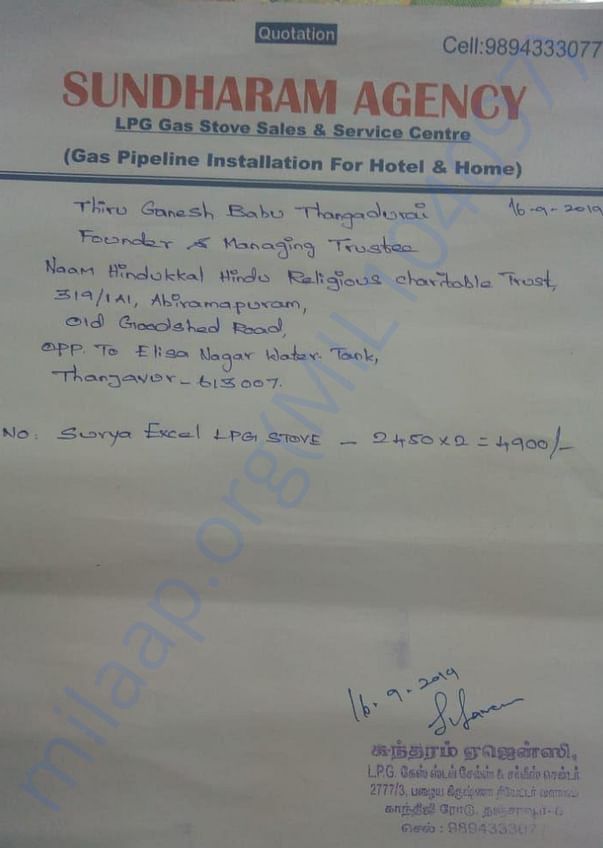 Quotation
Cell:9894333077
SUNDHARAM AGENCY
LPG Gas Stove Sales & Service Centre
(Gas Pipeline Installation For Hotel & Home)
Thiru Ganesh Babu Thangadurai 16-9-2019
Founder & Managing Trustee
Naam Hindukkal Hindu Religious charitable Trust,
319/1A1, Abiramapuram,
Old Goodshed Road,
OPP. To Elisa Nagar Water Tank,
Thanjavur - 613007.
No: Surya Excel LPG STOVE - 2450 x 2 = 4900/-
16-9-2019
சுந்தரம் ஏஜென்ஸி,
L.P.G. கேஸ் ஸ்டவ் சேல்ஸ் & சர்வீஸ் சென்டர்
2777/3, பழைய கிருஷ்ணா தியேட்டர்
காந்திஜி ரோடு, தஞ்சாவூர்-
செல் : 9894333077
milaap.org(MIL1040977)